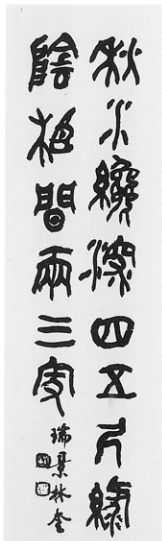 秋水纔深四五尺綠
陰相間兩三家
瑞景林奎